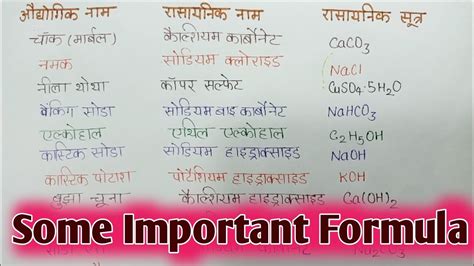 औद्योगिक नाम रासायनिक नाम रासायनिक सूत्र
चॉक (मार्बल) कैल्शियम कार्बोनेट CaCO3
नमक सोडियम क्लोराइड NaCl
नीला थोथा कॉपर सल्फेट CuSO4·5H2O
बैकिंग सोडा सोडियम बाइ कार्बोनेट NaHCO3
एल्कोहाल एथिल एल्कोहाल C2H5OH
कास्टिक सोडा सोडियम हाइड्राक्साइड NaOH
कास्टिक पोटाश पोटेशियम हाइड्राक्साइड KOH
बुझा चूना कैल्शियम हाइड्राक्साइड Ca(OH)2
Some Important Formula